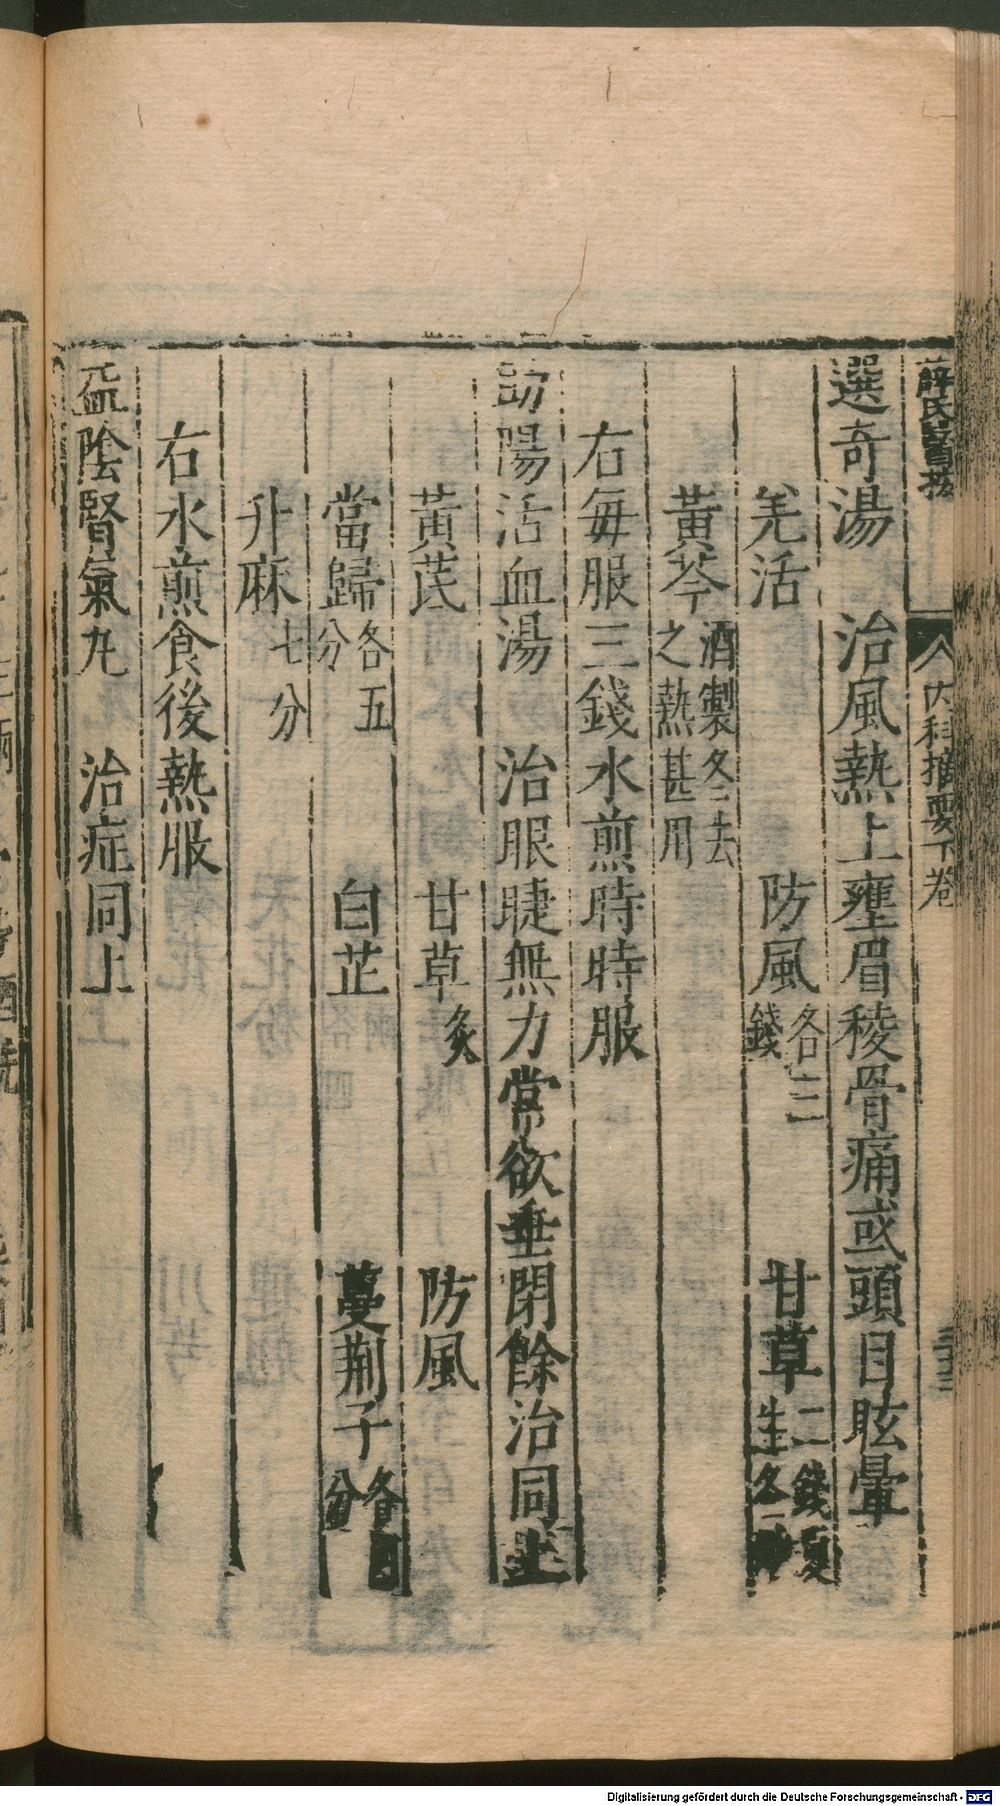 薛氏醫按 內科摘要下卷
選奇湯 治風熱上壅眉稜骨痛或頭目眩暈
羌活 防風各三錢 甘草二錢夏生冬
黃芩酒製冬去之熱甚用
右每服三錢水煎時時服
助陽活血湯 治眼睫無力常欲垂閉餘治同上
黃芪 甘草炙 防風
當歸各五分 白芷 蔓荆子各四分
升麻七分
右水煎食後熱服
益陰腎氣丸 治症同上
Digitalisierung gefördert durch die Deutsche Forschungsgemeinschaft - DFG